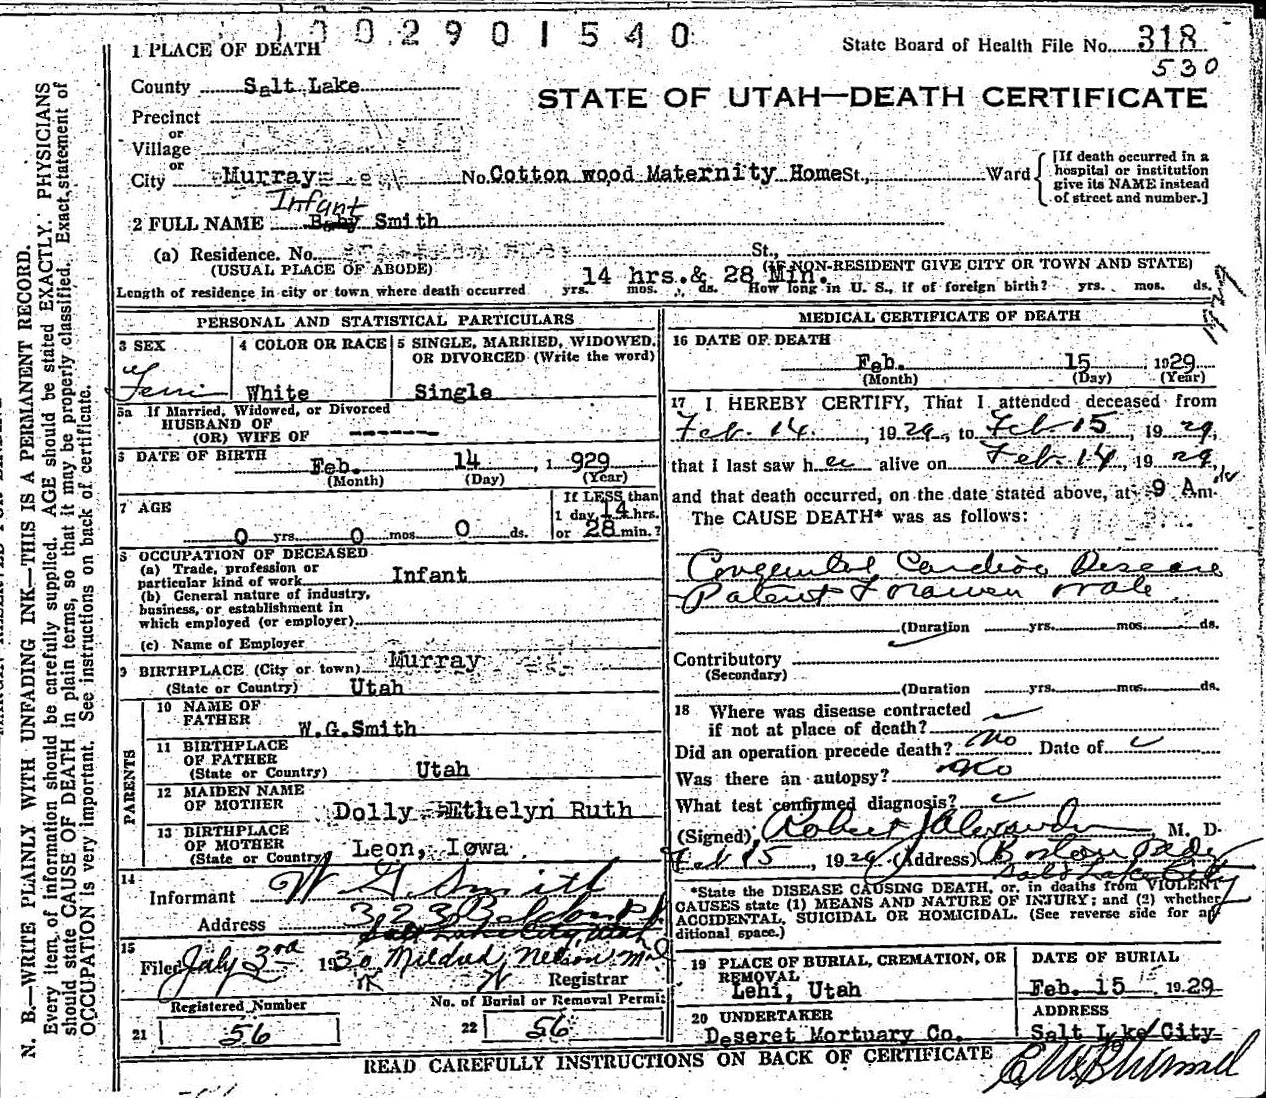 1002901540
State Board of Health File No. 318
530
STATE OF UTAH—DEATH CERTIFICATE
1 PLACE OF DEATH
County Salt Lake
Precinct
or
Village
or
City Murray No. Cotton wood Maternity Home St., Ward
[If death occurred in a
hospital or institution
give its NAME instead
of street and number.]
Infant
2 FULL NAME Baby Smith
(a) Residence. No. St.,
(USUAL PLACE OF ABODE) (IF NON-RESIDENT GIVE CITY OR TOWN AND STATE)
14 hrs. & 28 Min.
Length of residence in city or town where death occurred yrs. mos. ds. How long in U. S., if of foreign birth? yrs. mos. ds.
PERSONAL AND STATISTICAL PARTICULARS
3 SEX
Fem
4 COLOR OR RACE
White
5 SINGLE, MARRIED, WIDOWED,
OR DIVORCED (Write the word)
Single
5a If Married, Widowed, or Divorced
HUSBAND OF
(OR) WIFE OF -------
6 DATE OF BIRTH
Feb. 14 , 1 929
(Month) (Day) (Year)
7 AGE
0 yrs. 0 mos. 0 ds.
If LESS than
1 day, 14 hrs.
or 28 min.?
8 OCCUPATION OF DECEASED
(a) Trade, profession or
particular kind of work Infant
(b) General nature of industry,
business, or establishment in
which employed (or employer)
(c) Name of Employer
9 BIRTHPLACE (City or town) Murray
(State or Country) Utah
PARENTS
10 NAME OF
FATHER W.G.Smith
11 BIRTHPLACE
OF FATHER
(State or Country) Utah
12 MAIDEN NAME
OF MOTHER Dolly Ethelyn Ruth
13 BIRTHPLACE
OF MOTHER
(State or Country) Leon, Iowa
14
Informant W G Smith
Address 3023
Salt Lake City, Utah
15
Filed July 3rd 1930 Mildred Nelson
Registrar
Registered Number
21 56
No. of Burial or Removal Permit
22 56
MEDICAL CERTIFICATE OF DEATH
16 DATE OF DEATH
Feb. 15 1929
(Month) (Day) (Year)
17 I HEREBY CERTIFY, That I attended deceased from
Feb. 14. , 1929, to Feb 15 , 1929,
that I last saw her alive on Feb. 14 , 1929,
and that death occurred, on the date stated above, at 9 Am.
The CAUSE DEATH* was as follows:
Congenital Cardiac Disease
Patent Foramen Ovale
(Duration yrs. mos. ds.
Contributory
(Secondary)
(Duration yrs. mos. ds.
18 Where was disease contracted
if not at place of death?
Did an operation precede death? No Date of
Was there an autopsy? No
What test confirmed diagnosis?
(Signed) Robert J Alexander, M. D.
Feb 15 , 1929 (Address) Boston Bldg
Salt Lake City
*State the DISEASE CAUSING DEATH, or, in deaths from VIOLENT
CAUSES state (1) MEANS AND NATURE OF INJURY; and (2) whether
ACCIDENTAL, SUICIDAL OR HOMICIDAL. (See reverse side for ad
ditional space.)
19 PLACE OF BURIAL, CREMATION, OR
REMOVAL
Lehi, Utah
DATE OF BURIAL
Feb. 15 1929
20 UNDERTAKER
Deseret Mortuary Co.
ADDRESS
Salt Lake City
READ CAREFULLY INSTRUCTIONS ON BACK OF CERTIFICATE
N. B.—WRITE PLAINLY WITH UNFADING INK—THIS IS A PERMANENT RECORD.
Every item of information should be carefully supplied. AGE should be stated EXACTLY. PHYSICIANS
should state CAUSE OF DEATH in plain terms, so that it may be properly classified. Exact statement of
OCCUPATION is very important. See instructions on back of certificate.